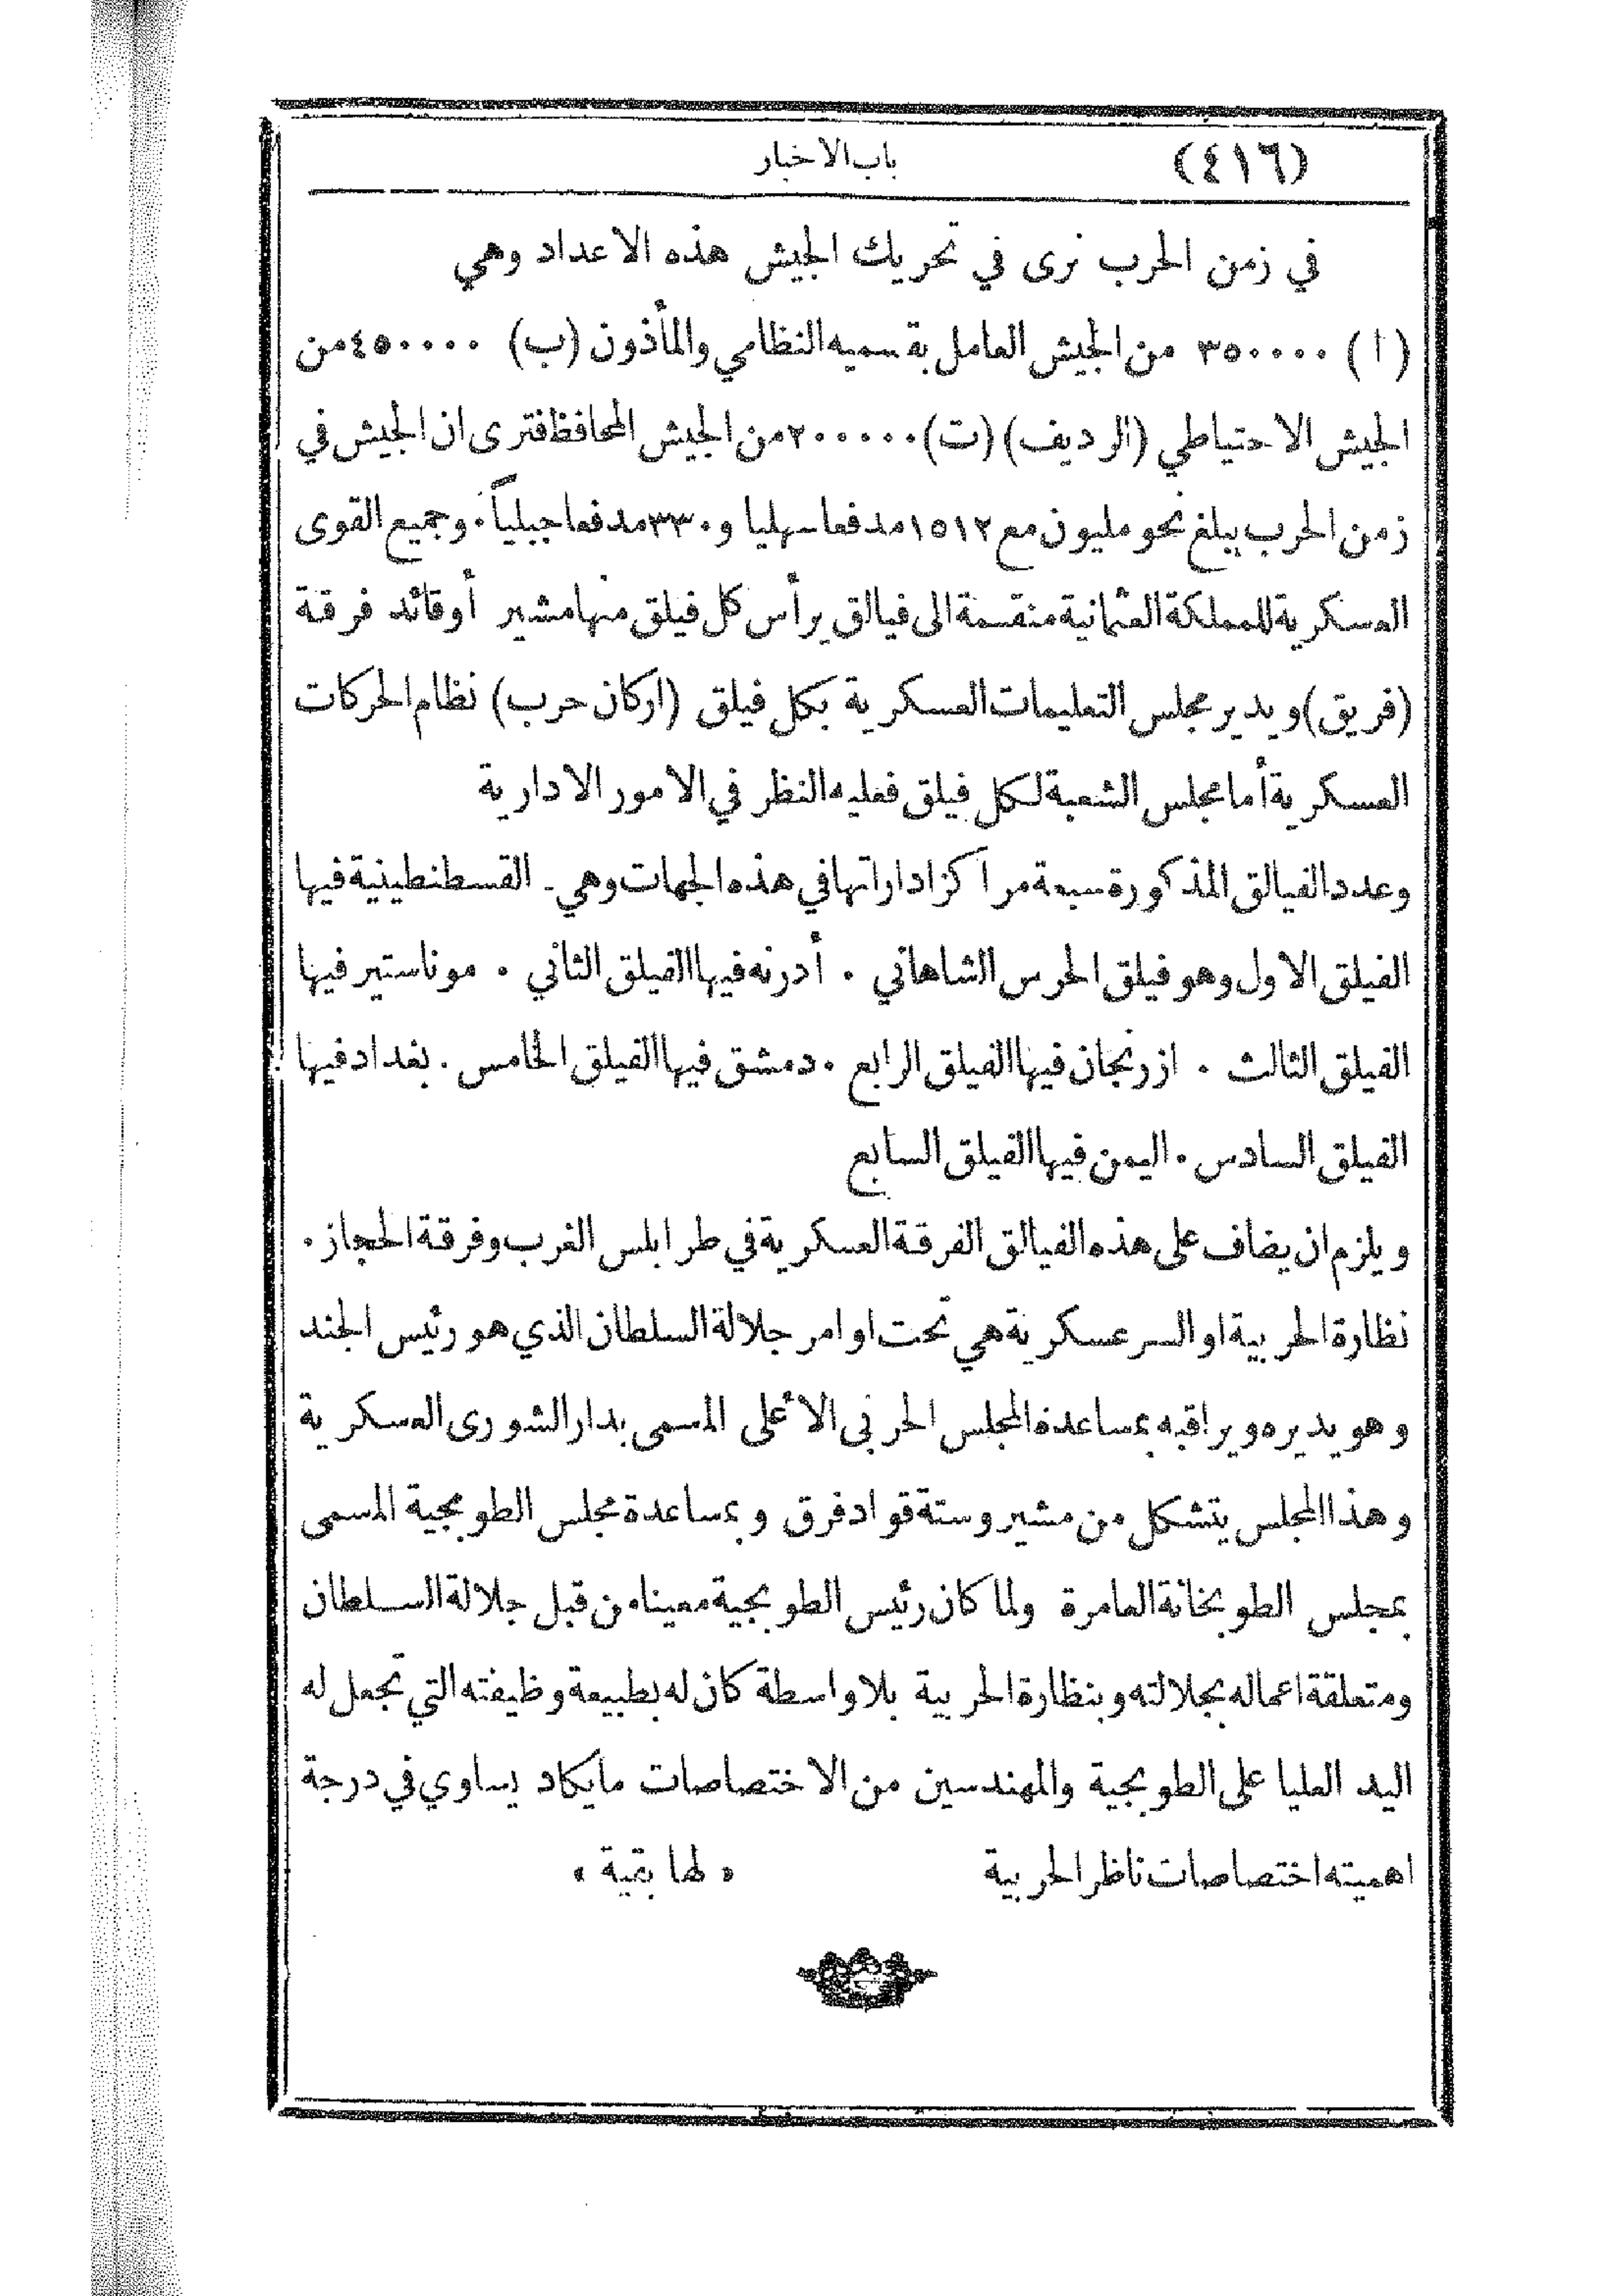 (٤١٦) باب الاخبار
في زمن الحرب نرى في تحريك الجيش هذه الاعداد وهي
(ا) ٣٥٠٠٠٠ من الجيش العامل بقسميه النظامي والمأذون (ب) ٤٥٠٠٠٠ من
الجيش الاحتياطي (الرديف) (ت) ٢٠٠٠٠٠ من الجيش المحافظ فترى ان الجيش في
زمن الحرب يبلغ نحو مليون مع ١٥١٢ مدفعا سهليا و٣٣٠ مدفعا جبلياً . وجميع القوى
العسكرية للمملكة العثمانية منقسمة الى فيالق يرأس كل فيلق منها مشير أو قائد فرقة
(فريق) ويدير مجلس التعليمات العسكرية بكل فيلق (اركان حرب) نظام الحركات
العسكرية أما مجلس الشعبة لكل فيلق فعليه النظر في الامور الادارية
وعدد الفيالق المذكورة سبعة مراكز اداراتها في هذه الجهات وهي - القسطنطينية فيها
الفيلق الاول وهو فيلق الحرس الشاهاني . أدرنه فيها الفيلق الثاني . موناستير فيها
الفيلق الثالث . ازرنجان فيها الفيلق الرابع . دمشق فيها الفيلق الخامس . بغداد فيها
الفيلق السادس . اليمن فيها الفيلق السابع
ويلزم ان يضاف على هذه الفيالق الفرقة العسكرية في طرابلس الغرب وفرقة الحجاز .
نظارة الحربية او السرعسكرية هي تحت اوامر جلالة السلطان الذي هو رئيس الجند
وهو يديره ويراقبه بمساعدة المجلس الحربى الأعلى المسمى بدار الشورى العسكرية
وهذا المجلس يتشكل من مشير وستة قواد فرق وبمساعدة مجلس الطوبجية المسمى
بمجلس الطوبخانة العامرة ولما كان رئيس الطوبجية معينا من قبل جلالة السلطان
ومتعلقة اعماله بجلالته وبنظارة الحربية بلا واسطة كان له بطبيعة وظيفته التي تجعل له
اليد العليا على الطوبجية والمهندسين من الاختصاصات ما يكاد يساوي في درجة
اهميته اختصاصات ناظر الحربية « لها بقية »